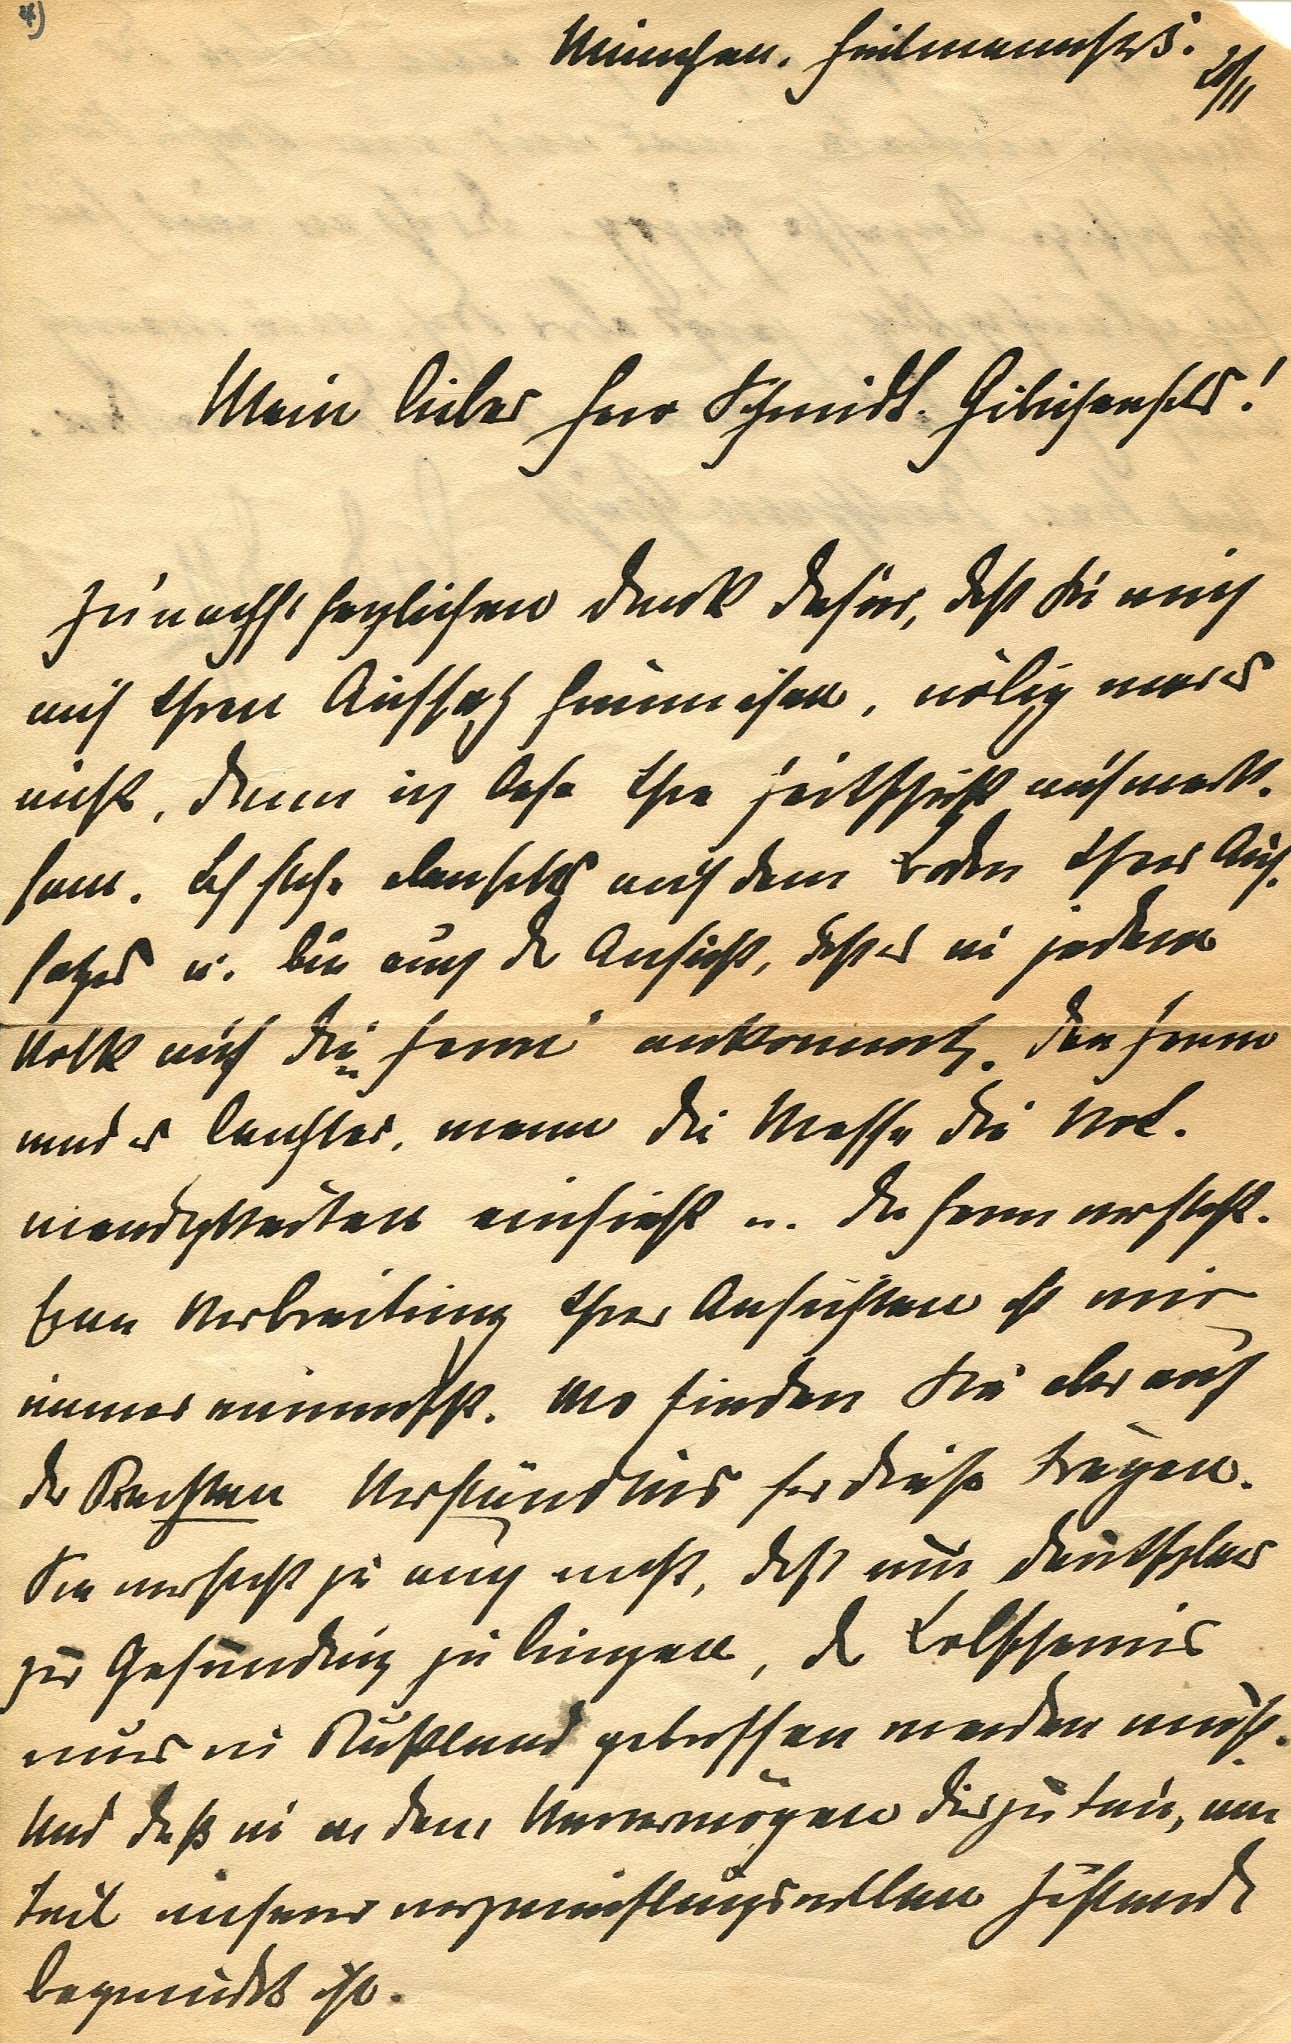 4)
München. Heilmannstr 5.
2/11
Mein lieber Herr Schmidt-Gibichenfels!
Zunächst herzlichen Dank dafür, daß Sie mich
auf Ihren Aufsatz hinweisen, nötig war es
nicht, denn ich lese Ihre Zeitschrift aufmerk-
sam. Ich stehe ebenfalls auf dem Boden Ihres Auf-
satzes u. bin auch der Ansicht, daß es in jedem
Volk auf die Herrn ankommt. Den Herrn
wird es leichter, wenn die Masse die Not-
wendigkeiten einsieht u. die Herrn versteht.
Eine Verbreitung Ihrer Ansichten ist mir
immer erwünscht. Wo finden Sie aber auf
der Rechten Verständnis für diese Fragen.
Sie versteht ja auch nicht, daß um Deutschland
zur Gesundung zu bringen, der Bolschewis
nur in Rußland getroffen werden muß.
Und daß in dem Unvermögen dies zu tun, ein
Teil unserer verzweiflungsvollen Zustände
begründet ist.